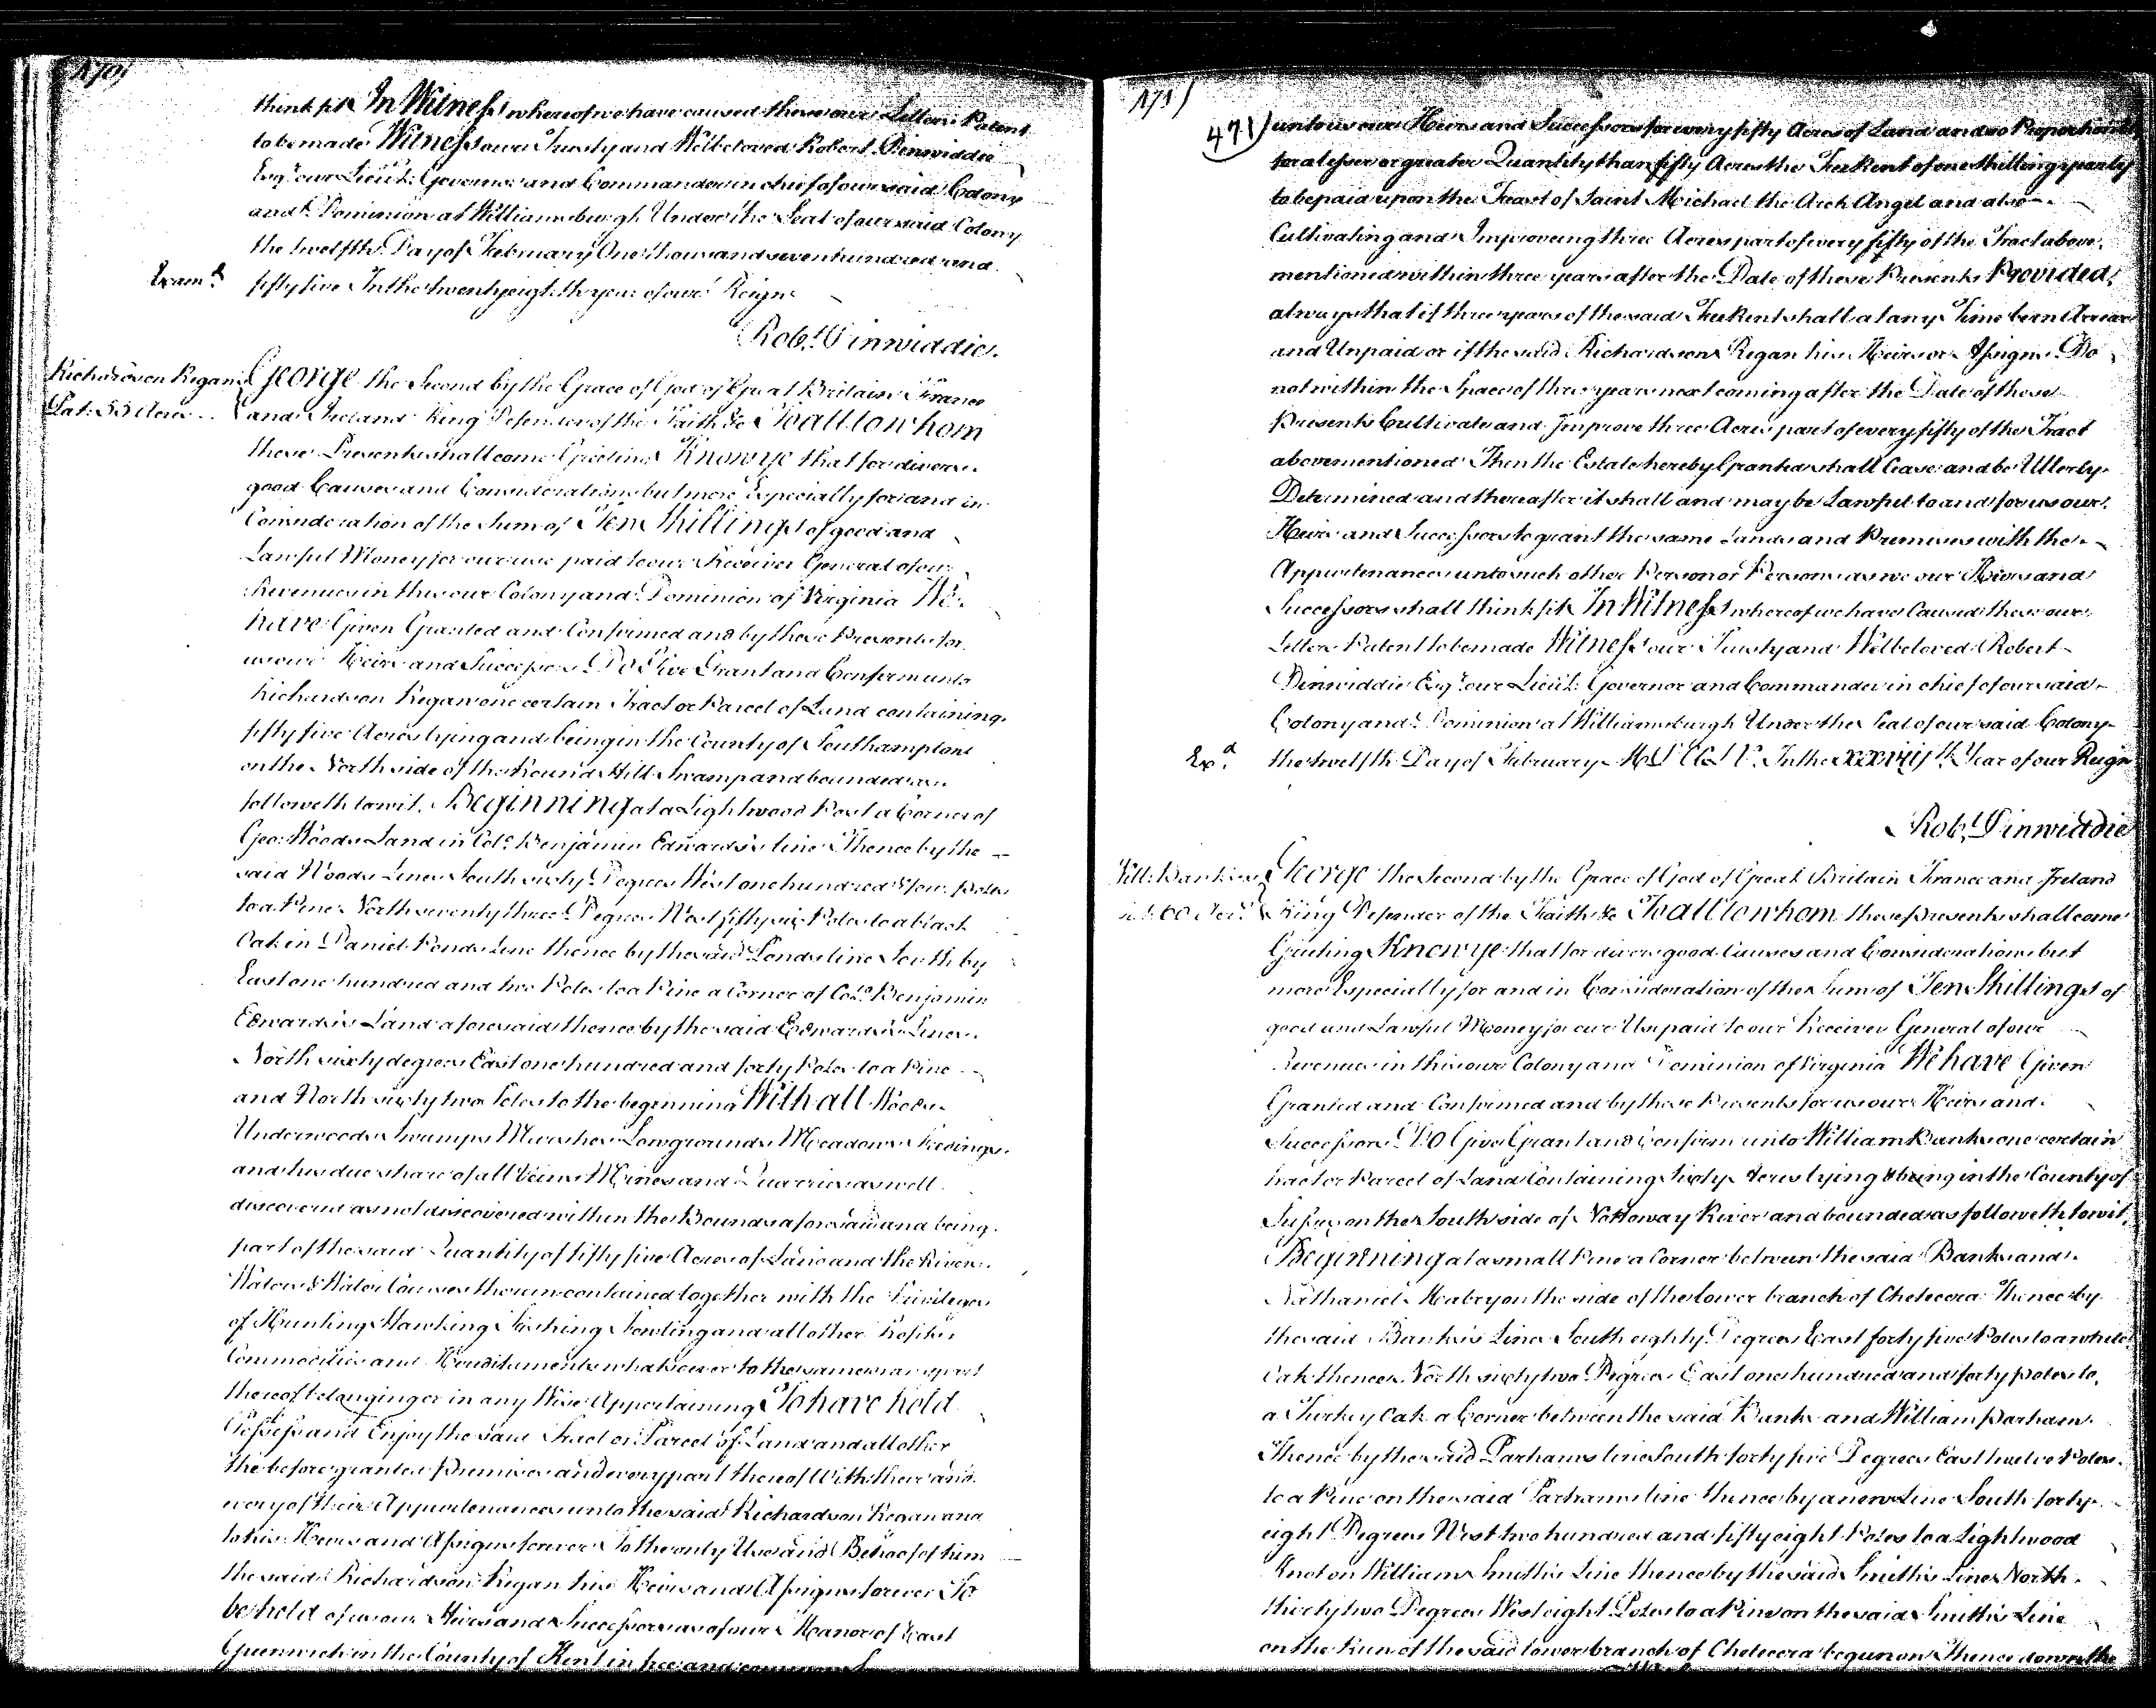 470)
think fit In Witness whereof we have caused these our Letters Patent
to be made Witness our Trusty and Welbeloved Robert Dinwiddie
Esqr. our Lieut. Governor and Commander in chief of our said Colony
and Dominion at Williamsburgh Under the Seal of our said Colony
the twelfth Day of February One thousand seven hundred and
Examd. fifty five In the twenty eighth year of our Reign
Robt. Dinwiddie.
Richardson Regan George the Second by the Grace of God of Great Britain France
Pat: 55 Acres and Ireland King Defender of the Faith &c To all to whom
these Presents shall come Greeting Know ye that for divers
good Causes and Considerations but more Especially for and in
Consideration of the Sum of Ten Shillings of good and
Lawful Money for our use paid to our Receiver General of our
Revenues in this our Colony and Dominion of Virginia We
have Given Granted and Confirmed and by these Presents for
us our Heirs and Successors Do Give Grant and Confirm unto
Richardson Regan one certain Tract or Parcel of Land containing
fifty five Acres lying and being in the County of Southampton
on the North side of the Round Hill Swamp and bounded as
followeth to wit. Beginning at a Lightwood Post a Corner of
Geo: Woods Land in Colo. Benjamin Edwards's line Thence by the
said Woods Lines South sixty Degrees West one hundred & four Poles
to a Pine North seventy three Degrees West fifty six Poles to a black
Oak in Daniel Ponds Line thence by the said Ponds line South by
East one hundred and two Poles to a Pine a Corner of Colo. Benjamin
Edwards's Land aforesaid thence by the said Edwards's Lines
North sixty degrees East one hundred and forty Poles to a Pine
and North sixty two Poles to the beginning With all Woods
Underwoods Swamps Marshes Lowgrounds Meadows Feedings
and his due share of all Veins Mines and Quarries as well
discovered as not discovered within the Bounds aforesaid and being
part of the said Quantity of fifty five Acres of Land and the Rivers
Waters & Water Courses therein contained together with the Privileges
of Hunting Hawking Fishing Fowling and all other Profits
Commodities and Hereditaments whatsoever to the same or any part
thereof belonging or in any Wise Appertaining To have hold
Possess and Enjoy the said Tract or Parcel of Land and all other
the before granted Premises and every part thereof With their and
every of their Appurtenances unto the said Richardson Regan and
to his Heirs and Assigns forever To the only Use and Behoof of him
the said Richardson Regan his Heirs and Assigns forever To
be held of us our Heirs and Successors as of our Manor of East
Greenwich in the County of Kent in free and common
471)
471) unto us our Heirs and Successors for every fifty Acres of Land and so Proportionably
for a lesser or greater Quantity than fifty Acres the Fee Rent of one shilling yearly
to be paid upon the Feast of Saint Michael the Arch Angel and also
Cultivating and Improveing three Acres part of every fifty of the Tract above
mentioned within three years after the Date of these Presents Provided
always that if three years of the said Fee Rent shall at any Time be in Arrear
and Unpaid or if the said Richardson Regan his Heirs or Assigns Do
not within the Space of three years next coming after the Date of these
Presents Cultivate and Improve three Acres part of every fifty of the Tract
abovementioned Then the Estate hereby Granted shall Cease and be Utterly
Determined and thereafter it shall and may be Lawful to and for us our
Heirs and Successors to grant the same Lands and Premises with the
Appurtenances unto such other Person or Persons as we our Heirs and
Successors shall think fit In Witness whereof we have Caused these our
Letters Patent to be made Witness our Trusty and Welbeloved Robert
Dinwiddie Esqr. our Lieut: Governor and Commander in chief of our said
Colony and Dominion at Williamsburgh Under the Seal of our said Colony
Exd. the twelfth Day of February MDCCLV. In the xxviijth. Year of our Reign
Robt. Dinwiddie
Will: Banks's George the Second by the Grace of God of Great Britain France and Ireland
60 Acrs. King Defender of the Faith &c To all to whom these Presents shall come
Greeting Know ye that for divers good Causes and Considerations but
more Especially for and in Consideration of the Sum of Ten Shillings of
good and Lawful Money for our Use paid to our Receiver General of our
Revenues in this our Colony and Dominion of Virginia We have Given
Granted and Confirmed and by these Presents for us our Heirs and
Successors Do Give Grant and Confirm unto William Banks one certain
tract or Parcel of Land Containing Sixty Acres lying & being in the County of
Sussex on the South side of Nottoway River and bounded as followeth to wit,
Beginning at a small Pine a Corner between the said Banks and
Nathaniel Mabry on the side of the lower branch of Chetecora Thence by
the said Banks's Line South eighty Degrees East forty five Poles to a white
Oak thence North sixty two Degrees East one hundred and forty poles to
a Turkey Oak a Corner between the said Banks and William Parham
Thence by the said Parhams line South forty five Degrees East twelve Poles
to a Pine on the said Parhams line thence by a new Line South forty
eight Degrees West two hundred and fifty eight Poles to a Lightwood
Knot on William Smith's Line thence by the said Smith's Line North
thirty two Degrees West eight Poles to a Pine on the said Smith's Line
on the Run of the said lower branch of Chetecora begun on Thence down the